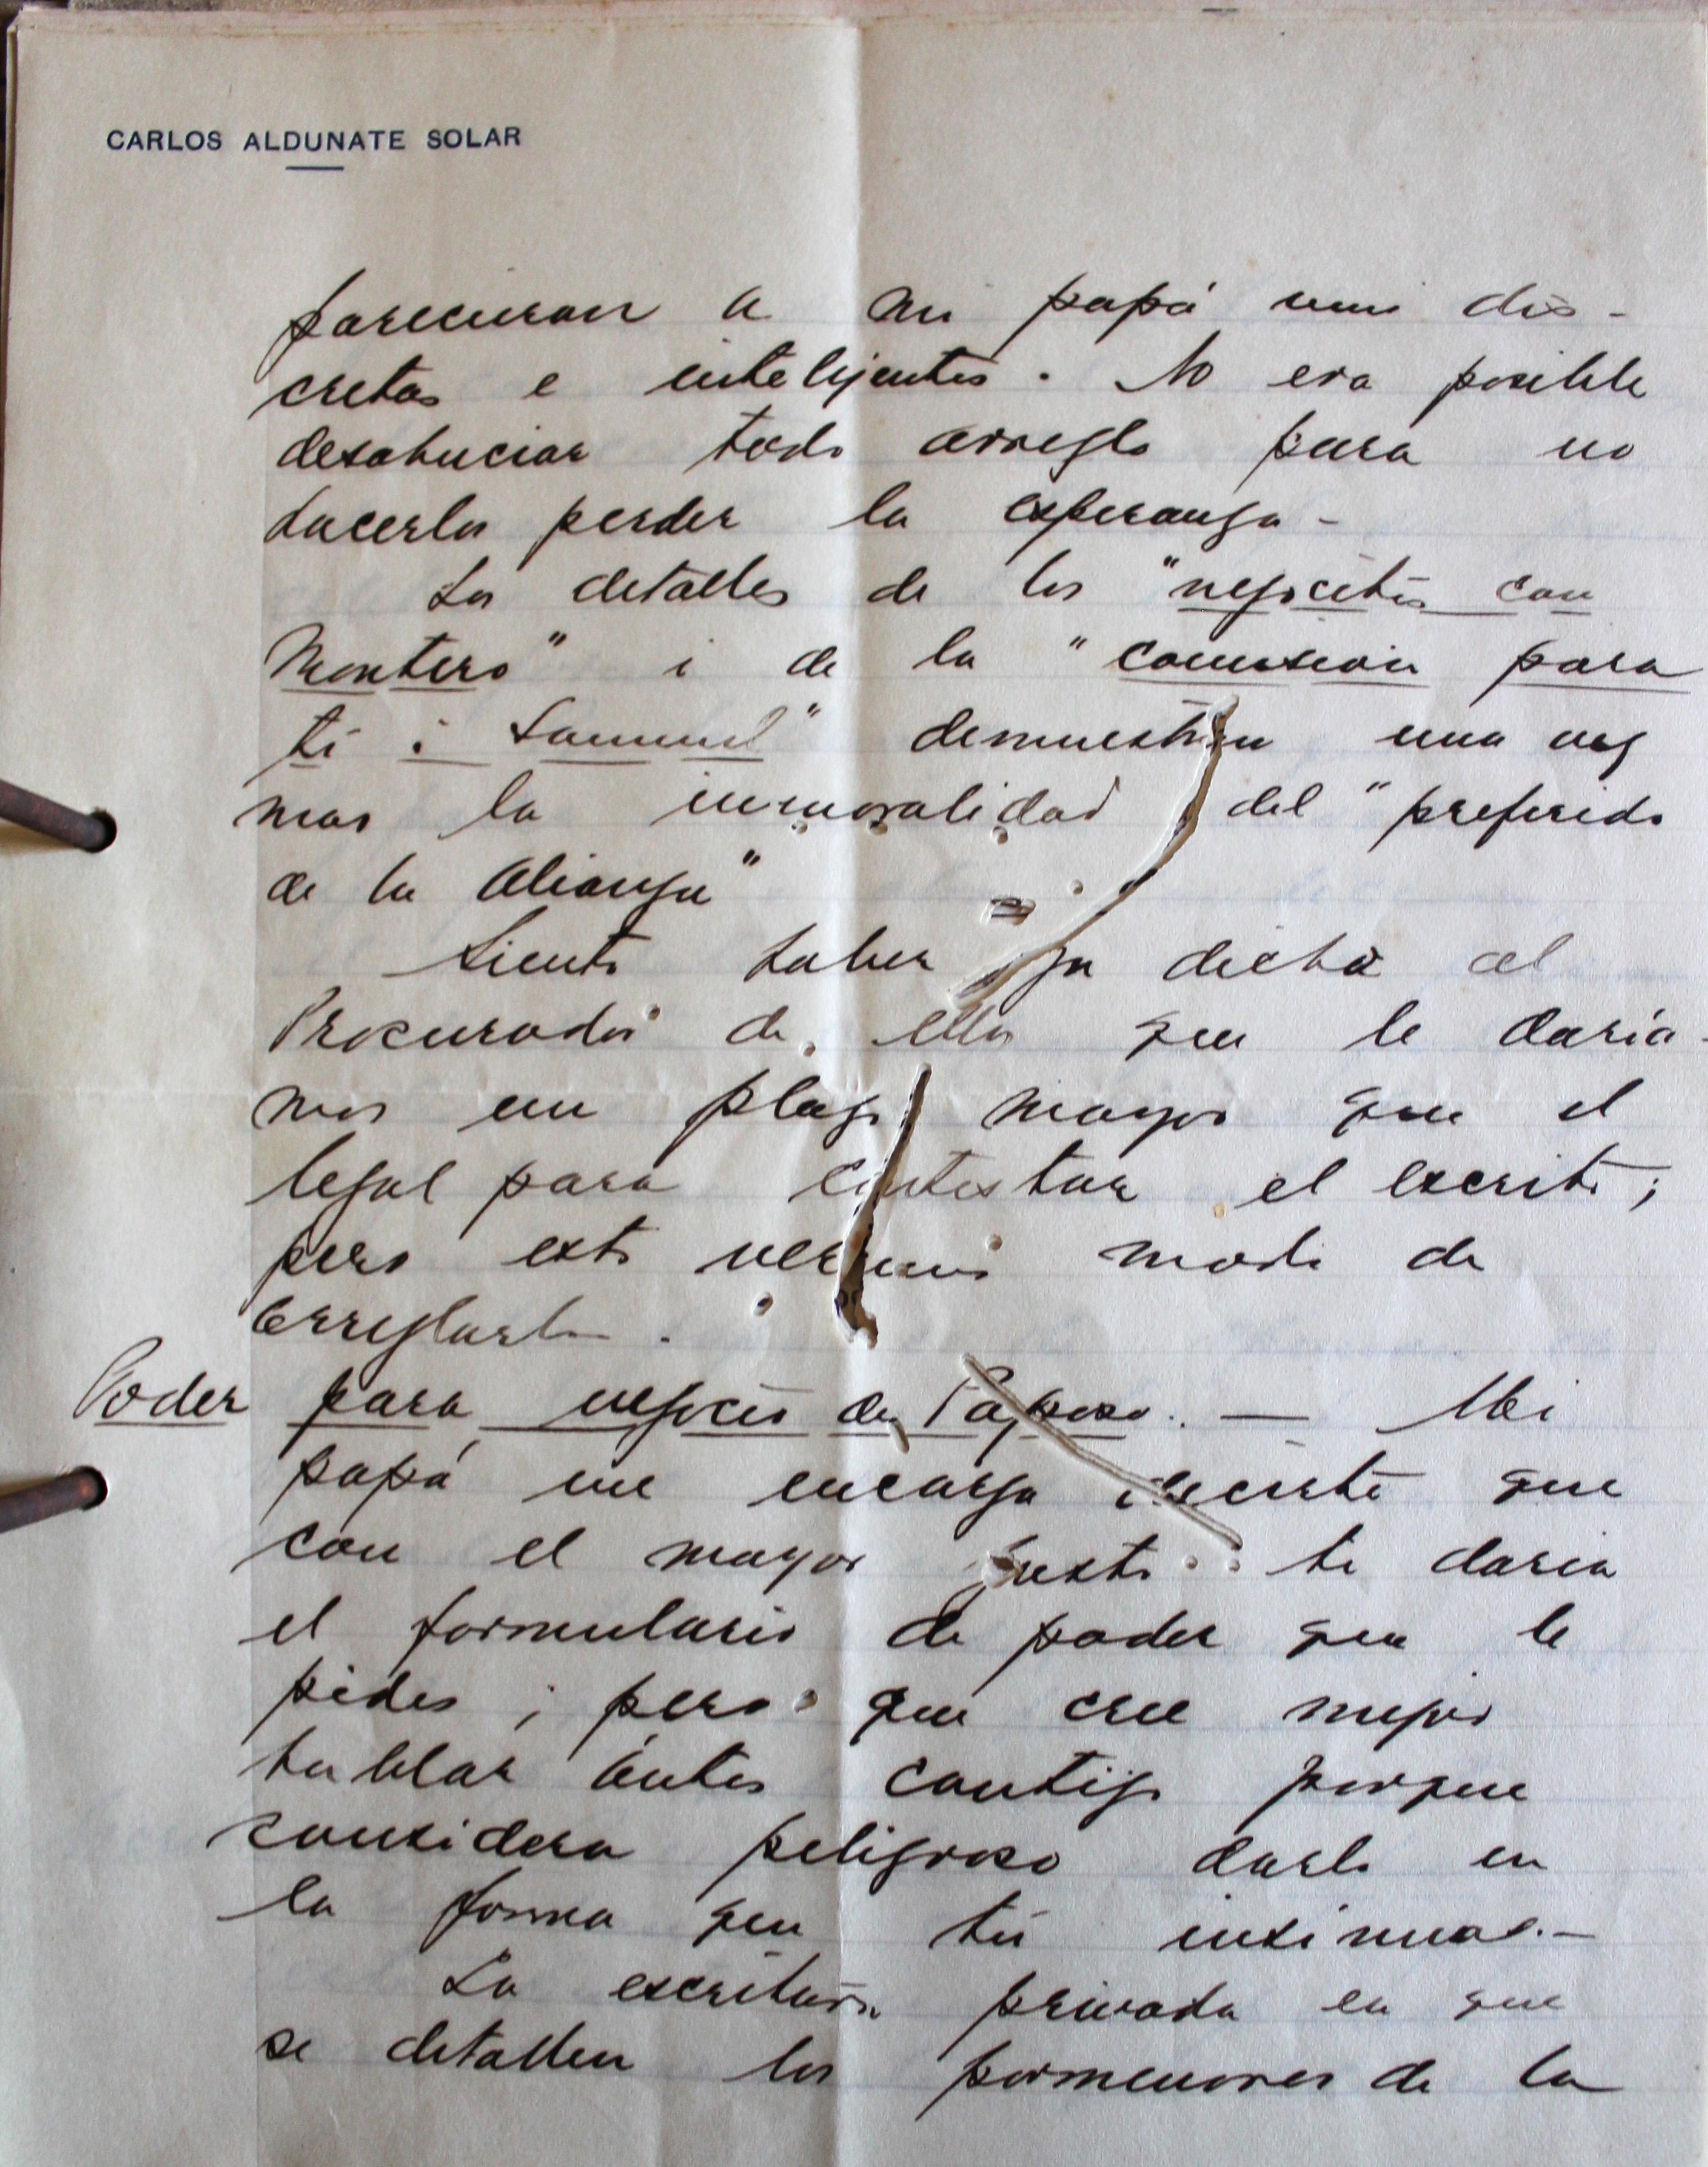 CARLOS ALDUNATE SOLAR
parecieron a mi papá mui dis-
cretas e intelijentes. No era posible
desahuciar todo arreglo para no
hacerlos perder la esperanza -
Los detalles de los "negocitos con
Montero" i de la "comision para
ti i Samuel" demuestran una vez
mas la inmoralidad del "preferido
de la Alianza"
Siento haber ya dicho al
Procurador de ellos que le daria-
mos un plazo mayor que el
legal para contestar el escrito;
pero esto veremos modo de
arreglarlo.
Poder para negocio de Paposo. — Mi
papá me encarga decirte que
con el mayor gusto te daria
el formulario de poder que le
pides; pero que cree mejor
hablar ántes contigo porque
considera peligroso darlo en
la forma que tú insinuas. —
La escritura privada en que
se detallen los pormenores de la